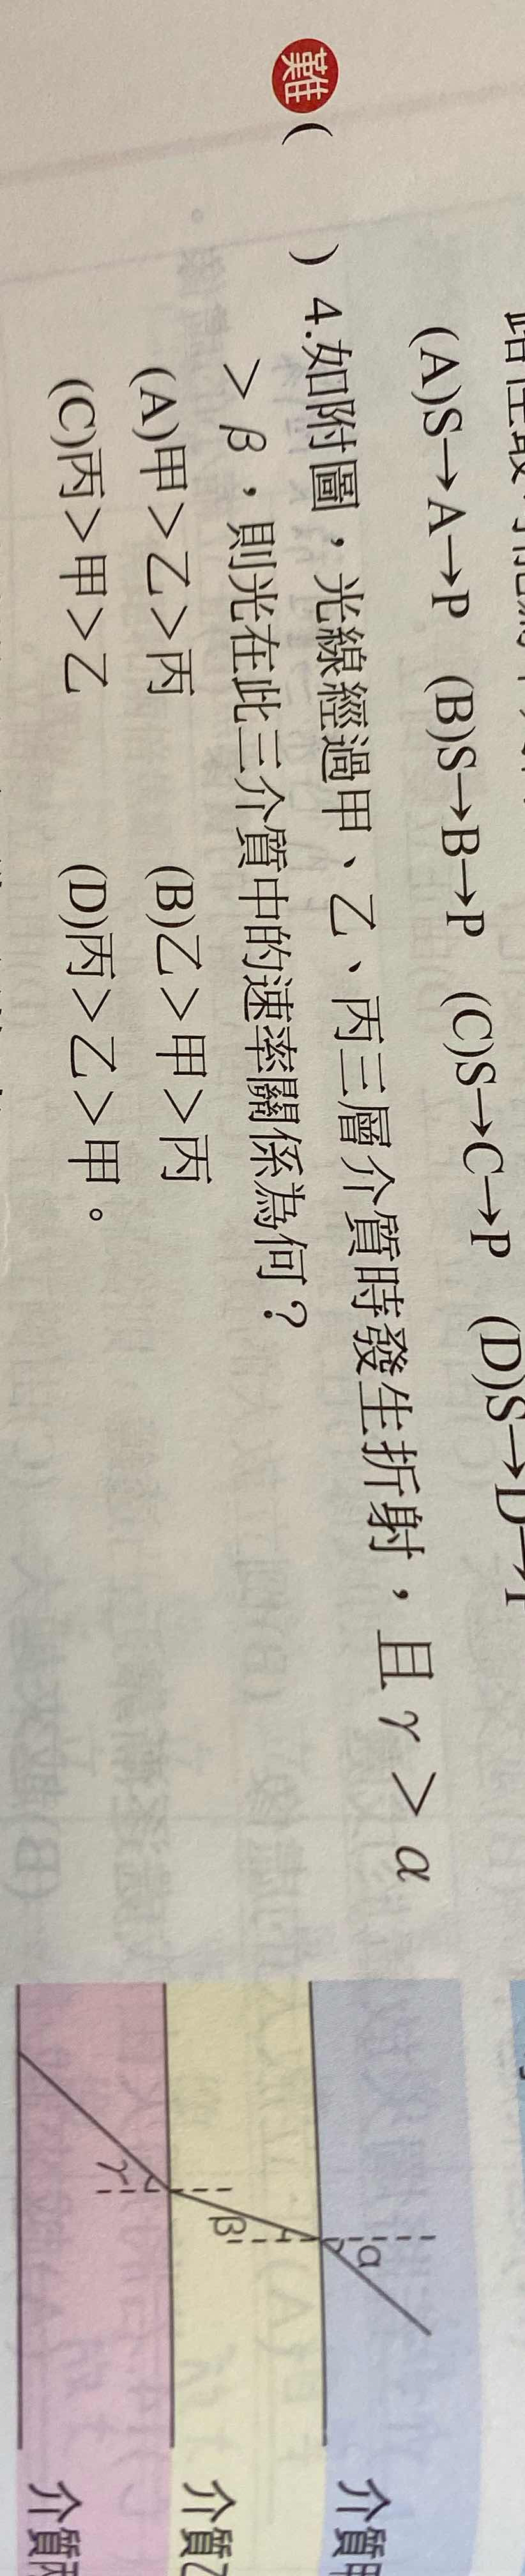 (A)S→A→P (B)S→B→P (C)S→C→P (D)S→D→P
難( ) 4.如附圖，光線經過甲、乙、丙三層介質時發生折射，且γ＞α
＞β，則光在此三介質中的速率關係為何？
(A)甲＞乙＞丙 (B)乙＞甲＞丙
(C)丙＞甲＞乙 (D)丙＞乙＞甲。
α
介質甲
β
介質乙
γ
介質丙